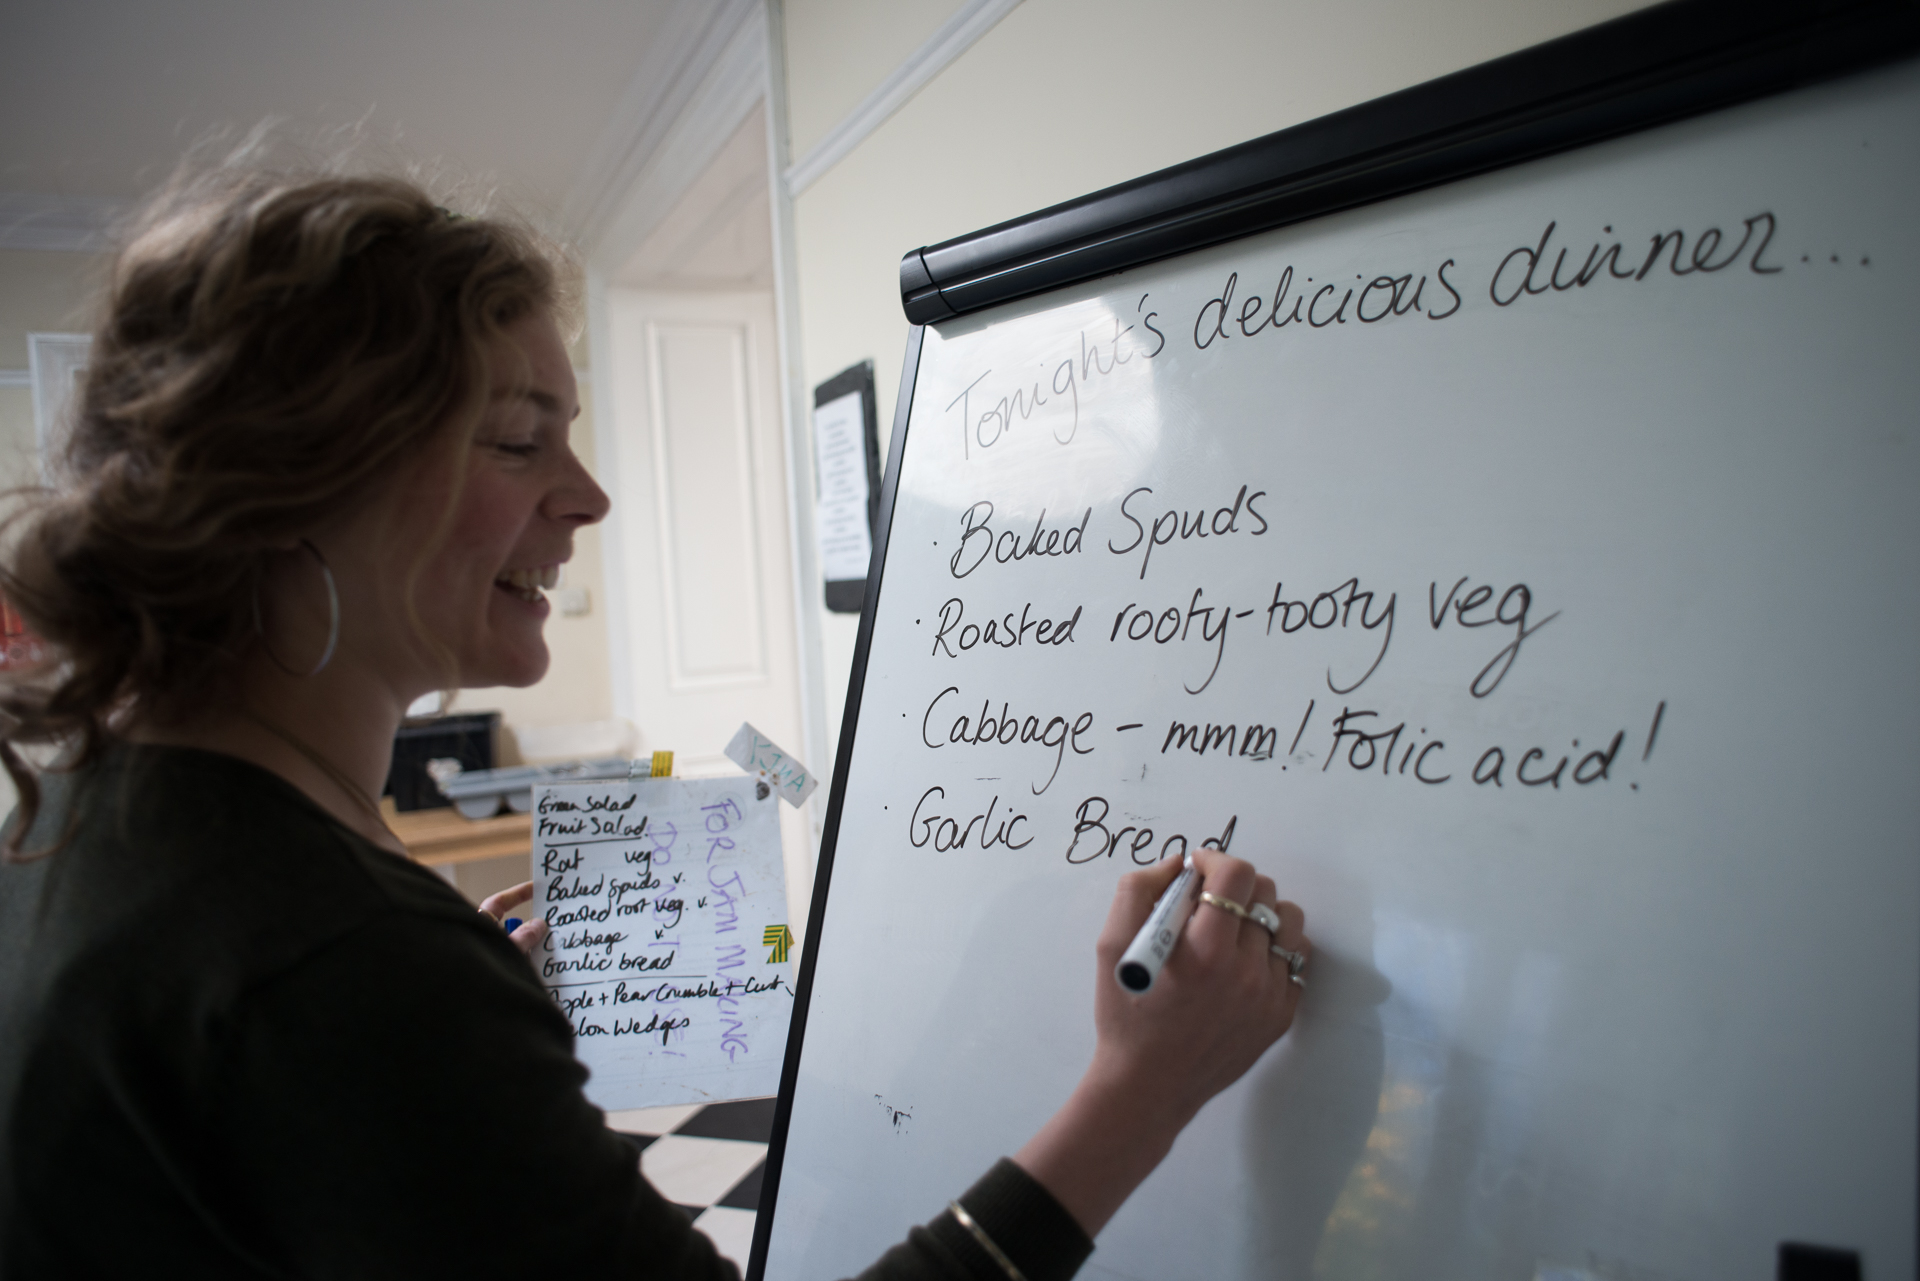 Tonight's delicious dinner...
· Baked Spuds
· Roasted rooty-tooty veg
· Cabbage - mmm! Folic acid!
· Garlic Bread
Green Salad
Fruit Salad
veg
Baked spuds v.
Roasted root veg. v.
Cabbage v
Garlic bread
Apple + Pear Crumble + Cust
Melon Wedges
FOR JAM MAKING
DO NOT USE!